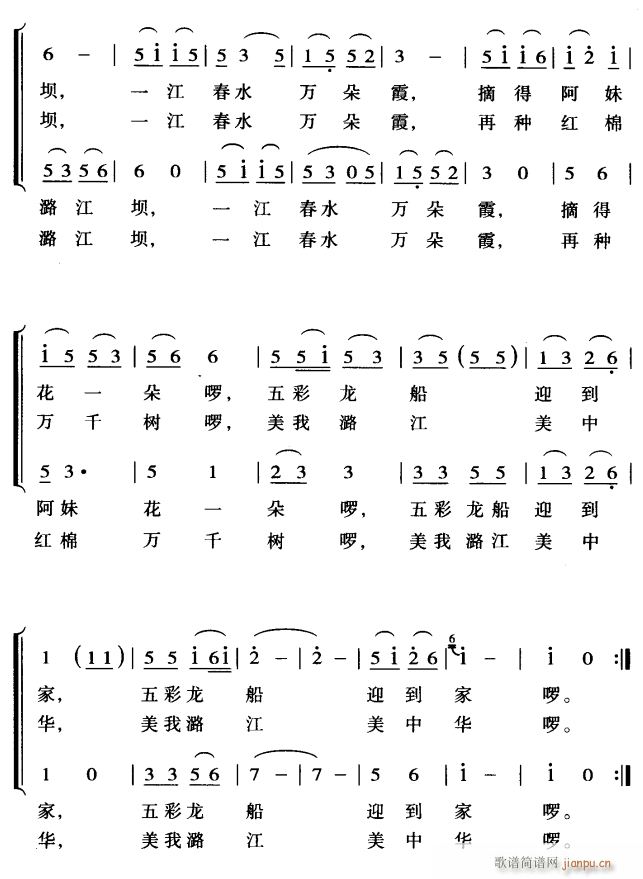 6 - | 5 i i 5 | 5 3 5 | 1 5 5 2 | 3 - | 5 i i 6 | i 2 i |
坝, 一江 春水 万 朵 霞, 摘得 阿妹
坝, 一江 春水 万 朵 霞, 再种 红棉
5 3 5 6 | 6 0 | 5 i i 5 | 5 3 0 5 | 1 5 5 2 | 3 0 | 5 6 |
潞江 坝, 一江 春水 万朵 霞, 摘得
潞江 坝, 一江 春水 万朵 霞, 再种
i 5 5 3 | 5 6 6 | 5 5 i 5 3 | 3 5 (5 5) | 1 3 2 6 |
花一 朵啰, 五彩龙 船 迎到
万千 树啰, 美我潞 江 美中
5 3· | 5 1 | 2 3 3 | 3 3 5 5 | 1 3 2 6 |
阿妹 花一 朵 啰, 五彩龙船 迎到
红棉 万千 树 啰, 美我潞江 美中
1 (1 1) | 5 5 i 6 i | 2 - | 2 - | 5 i 2 6 | 6 i - | i 0 :||
家, 五彩龙 船 迎到家 啰。
华, 美我潞 江 美中华 啰。
1 0 | 3 3 5 6 | 7 - | 7 - | 5 6 | i - | i 0 :||
家, 五彩龙 船 迎到家 啰。
华, 美我潞 江 美中华 啰。
歌谱简谱网 jianpu.cn